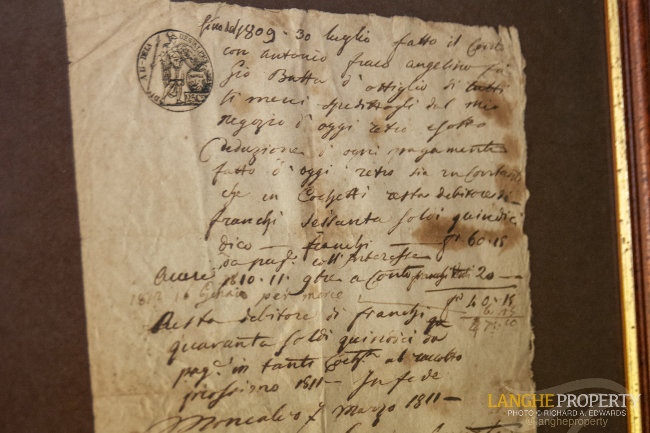 fino del 1809 - 30 luglio fatto il Conto
con Antonio franco angelino fu
Gio Batta d'ottiglio di tutti
li merci speditogli dal mio
negozio d'oggi retro e sotto
Deduzione d'ogni pagamento
fatto d'oggi retro sia in Contanti
che in resta debitore di
franchi sessanta soldi quindici
dico — franchi — fr 60.15
da pag. coll'Interesse
1810 - 11 9bre a Conto franchi 20 —
Genaro per merce
fr 40.15
Resta debitore di franchi
quaranta soldi quindici da
pag. in tanti al racolto
prossimo 1811 — In fede
Moncalvo 7 Marzo 1811 —
LANGHEPROPERTY
PHOTO © RICHARD A. EDWARDS
@langheproperty